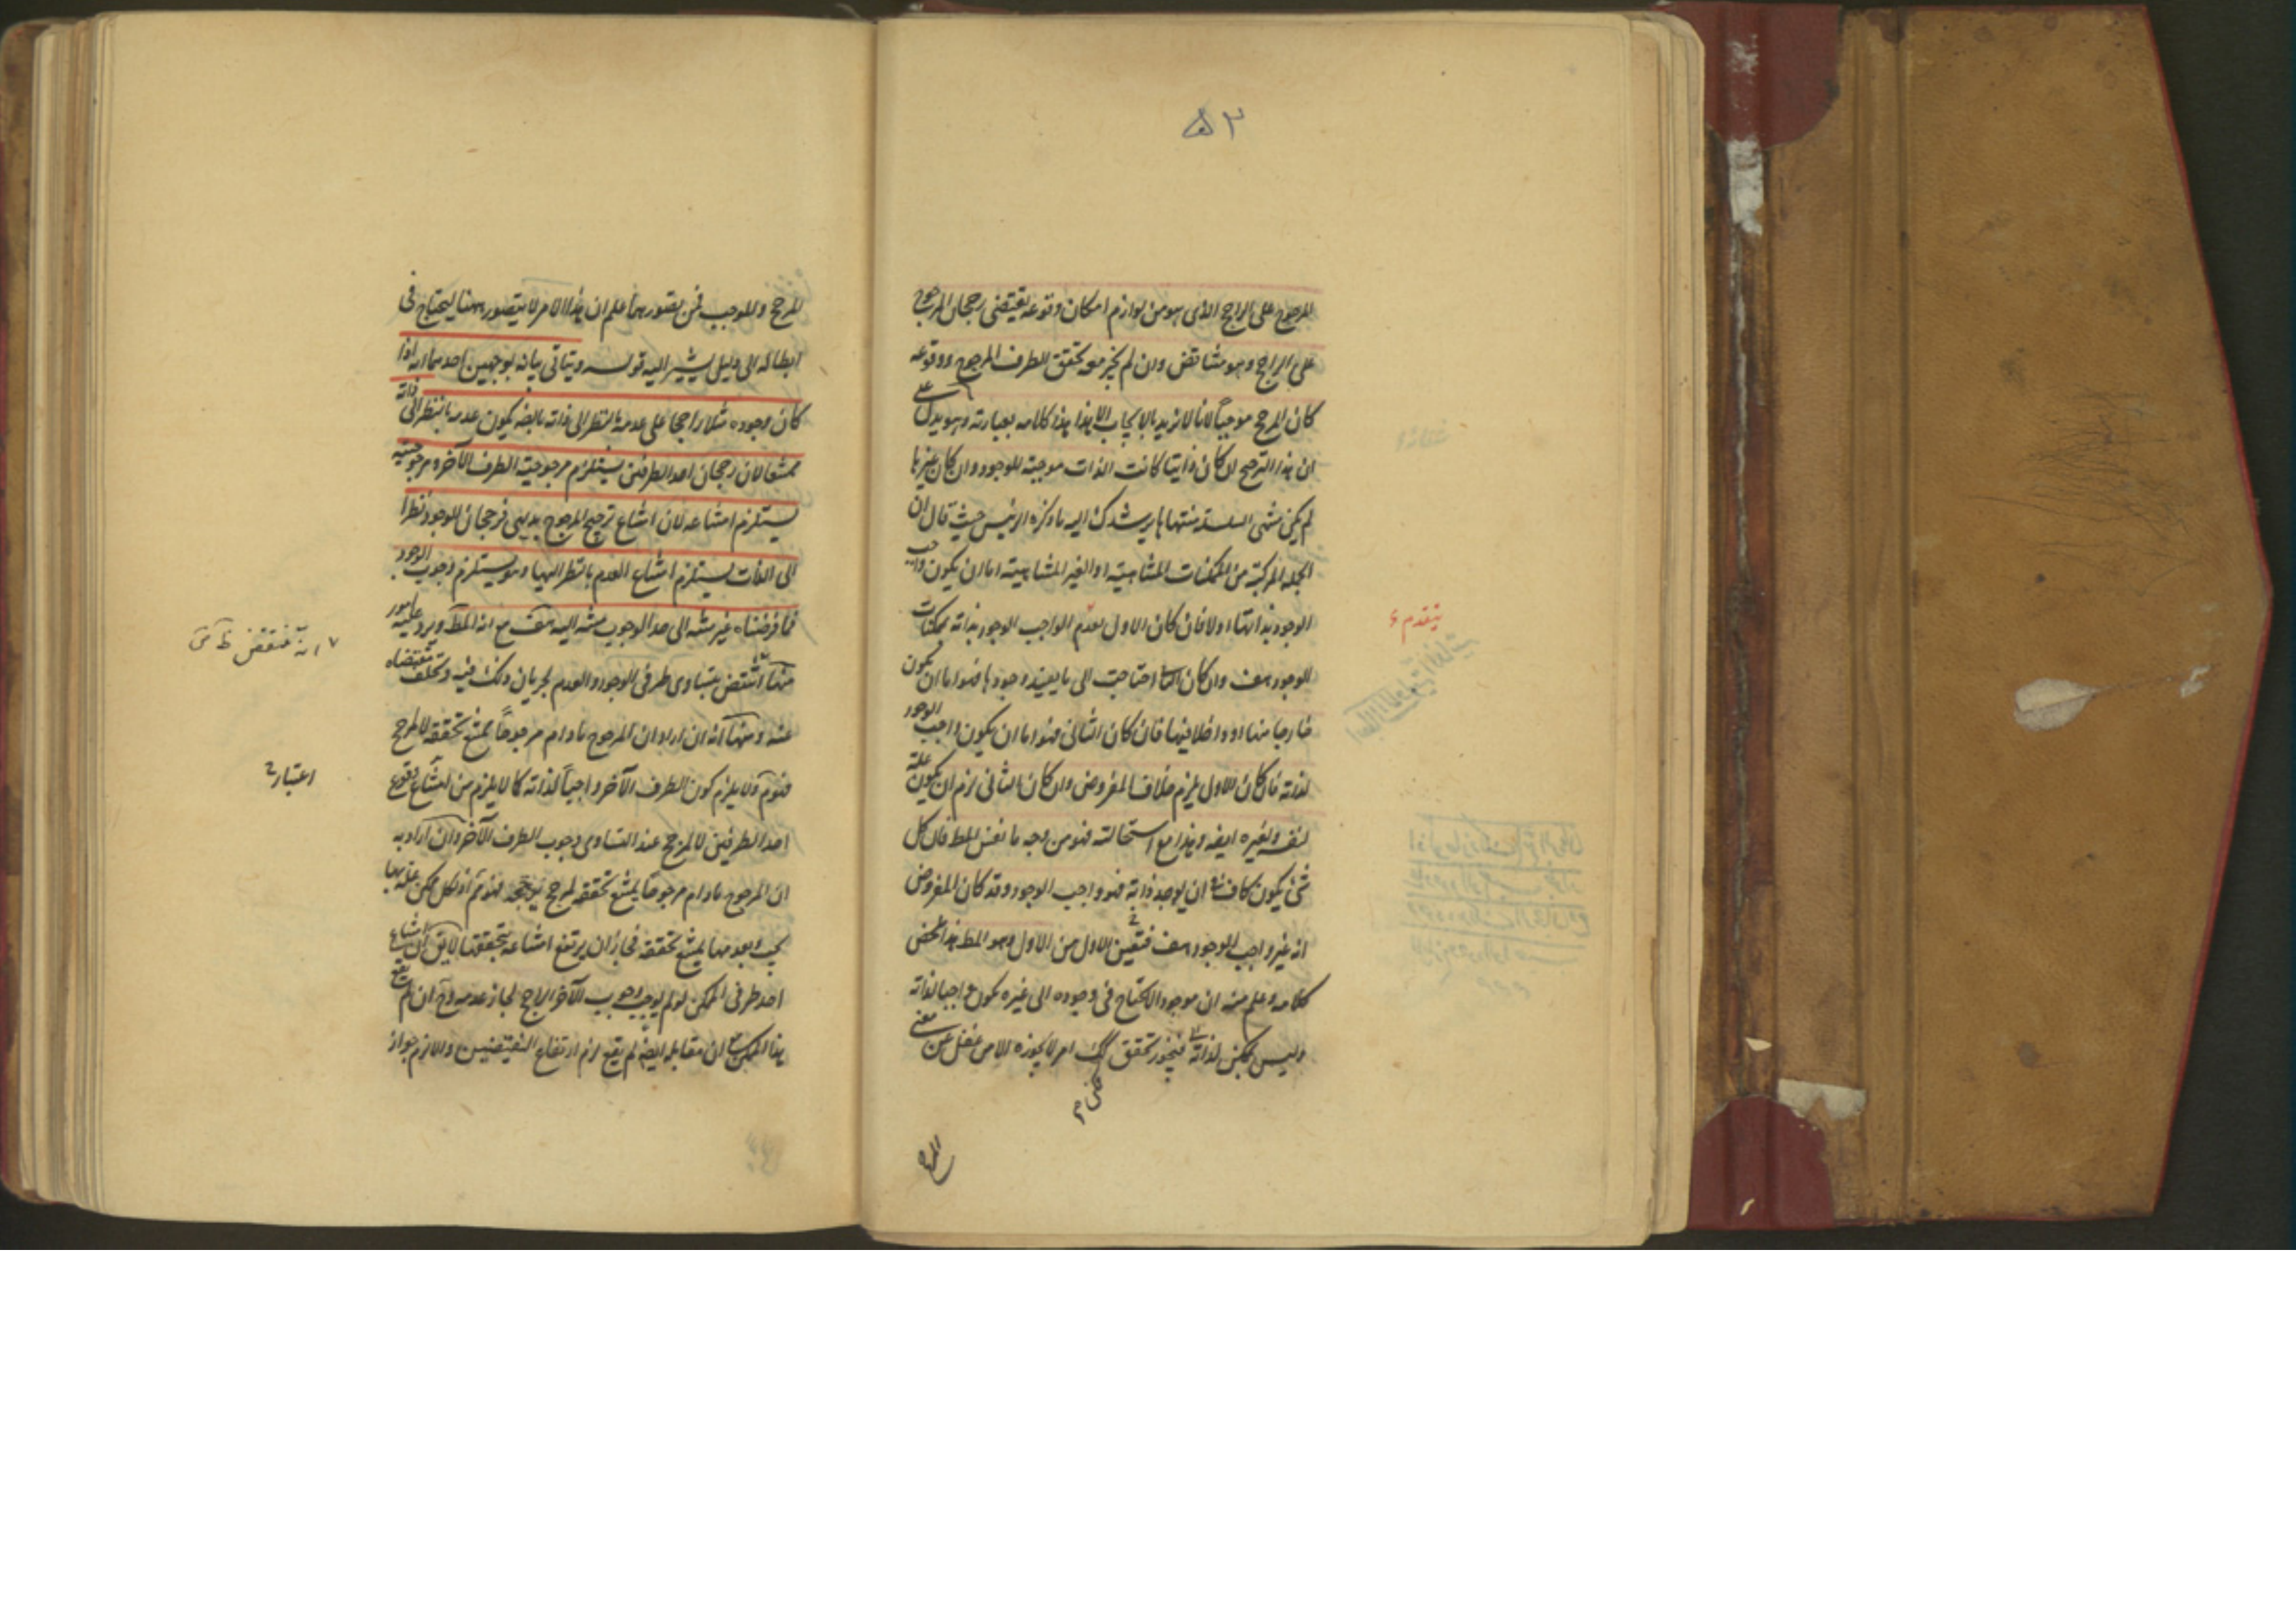 ٥٣
المرجوح على الراجح الذى هو من لوازم امكان وقوعه يقتضى رجحان المرجوح
على الراجح وهو مناقض وان لم يجز معه تحقق الطرف المرجوح ووقوعه
كان المرجح موجباً لانا لا نريد بالايجاب الا هذا هذا كلامه بعبارته وهو يدل على
ان هذا الترجيح ان كان ذاتيا كانت الذات موجبة للوجود وان كان غيرها
لم يكن منتهى السلسلة منتهاها يرشدك اليه ما ذكره الرئيس حيث قال ان
الجملة المركبة من الممكنات المتناهية او الغير المتناهية اما ان يكون واجب
الوجود بذاتها اولا فان كان الاول يقدم الواجب الوجود بذاته بممكنات
يتقدم
الوجود هف وان كان الثانى احتاجت الى ما يفيد وجودها فهو اما ان يكون
خارجا منها او داخلا فيها فان كان الثانى فهو اما ان يكون واجب الوجود
لذاته فان كان الاول يلزم خلاف المفروض وان كان الثانى لزم ان يكون علة
لنفسه ولغيره ايضا وهذا مع استحالته فهو من وجه ما نفس المط فان كل
شئ يكون كافيا ان يوجد ذاته فهو واجب الوجود وقد كان المفروض
انه غير واجب الوجود هف فتعين الاول من الاول وهو المط هذا ملخص
كلامه وعلم منه ان موجودا لا يحتاج فى وجوده الى غيره يكون واجبا لذاته
وليس بممكن لذاته فتجويز تحقق امر لا يجوزه الا من غفل عن معنى
المرجح
المرجح والموجب فمن تصورهما علم ان هذا الامر لا يتصور ههنا ليحتاج فى
ابطاله الى دليل يشير اليه قوله ويتاتى بيانه بوجهين احدهما انه اذا
كان وجوده مثلا راجحا على عدمه بالنظر الى ذاته بالضرورة يكون عدمه بالنظر الى ذاته
ممتنعا لان رجحان احد الطرفين يستلزم مرجوحية الطرف الآخر ومرجوحيته
يستلزم امتناعه لان امتناع ترجيح المرجوح بديهى فرجحان الوجود نظرا
الى الذات يستلزم امتناع العدم بالنظر اليها وهو يستلزم وجوب الوجود
فما فرضناه غير منته الى حد الوجوب منته اليه هف مع انه المط ويرد عليه امور
منها انتقض بتساوى طرفى الوجود والعدم لجريان ذلك فيه وتخلف مقتضاه
عنه ومنها انه ان اراد ان المرجوح مادام مرجوحاً يمتنع تحققه لا لمرجح
فهو م ولا يلزم كون الطرف الآخر واجباً لذاته كما لا يلزم من امتناع وقوع
اعتبار
احد الطرفين لا لمرجح عند التساوى وجوب الطرف الآخر وان اراد به
ان المرجوح مادام مرجوحاً يمتنع تحققه لمرجح
يجب وبعدمها يمتنع تحققه فجاز ان يرتفع امتناعه بتحققها لا يق ان امتناع
احد طرفى الممكن لو لم يوجب وجوب الآخر الراجح لجاز عدمه وح ان لم يقع
هذا الممكن ان مقابله ايضا لم يقع لزم ارتفاع النقيضين والا لزم جواز